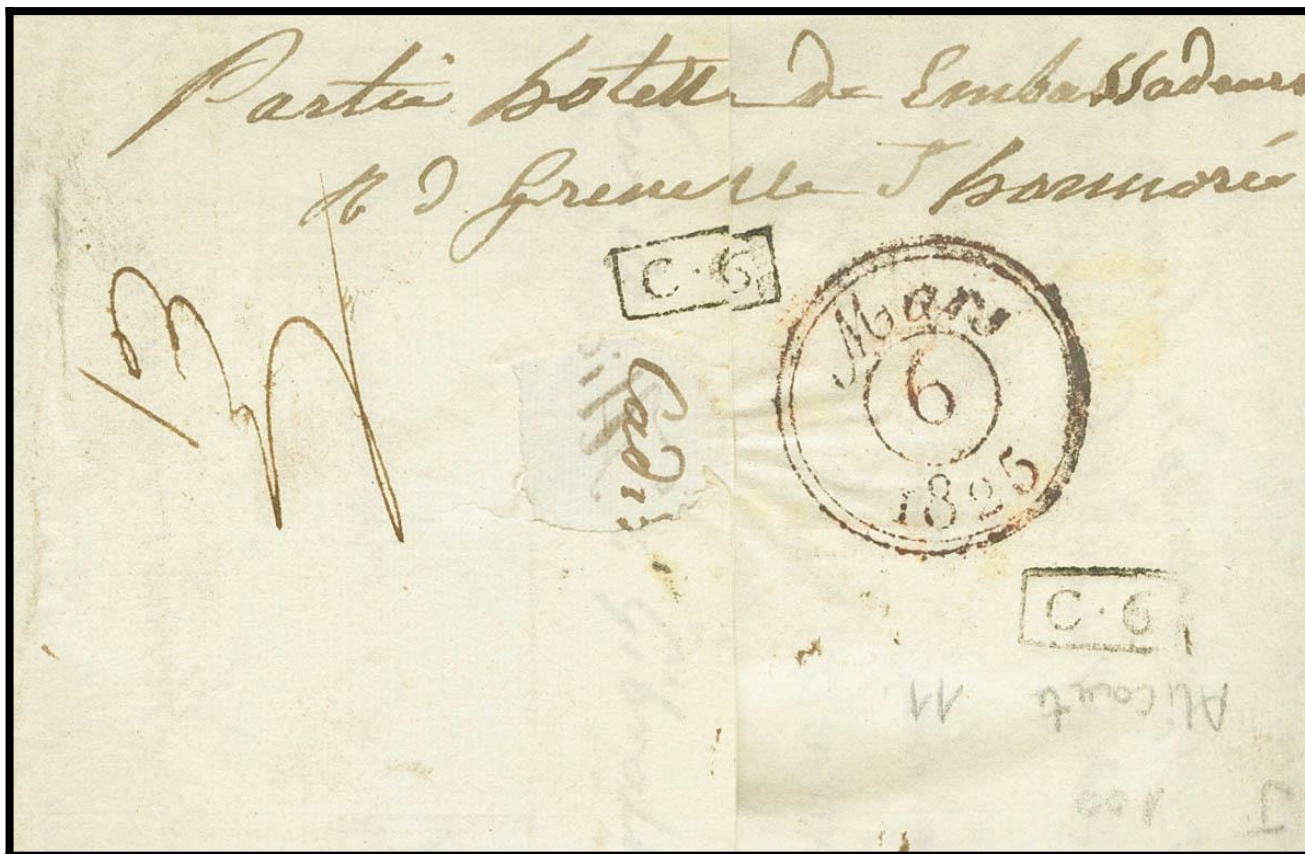 Partie hotell de Embassadeurs
R d Grenelle S honnoré
C·6
Mars
6
1825
C·6
Alicante 11.
100